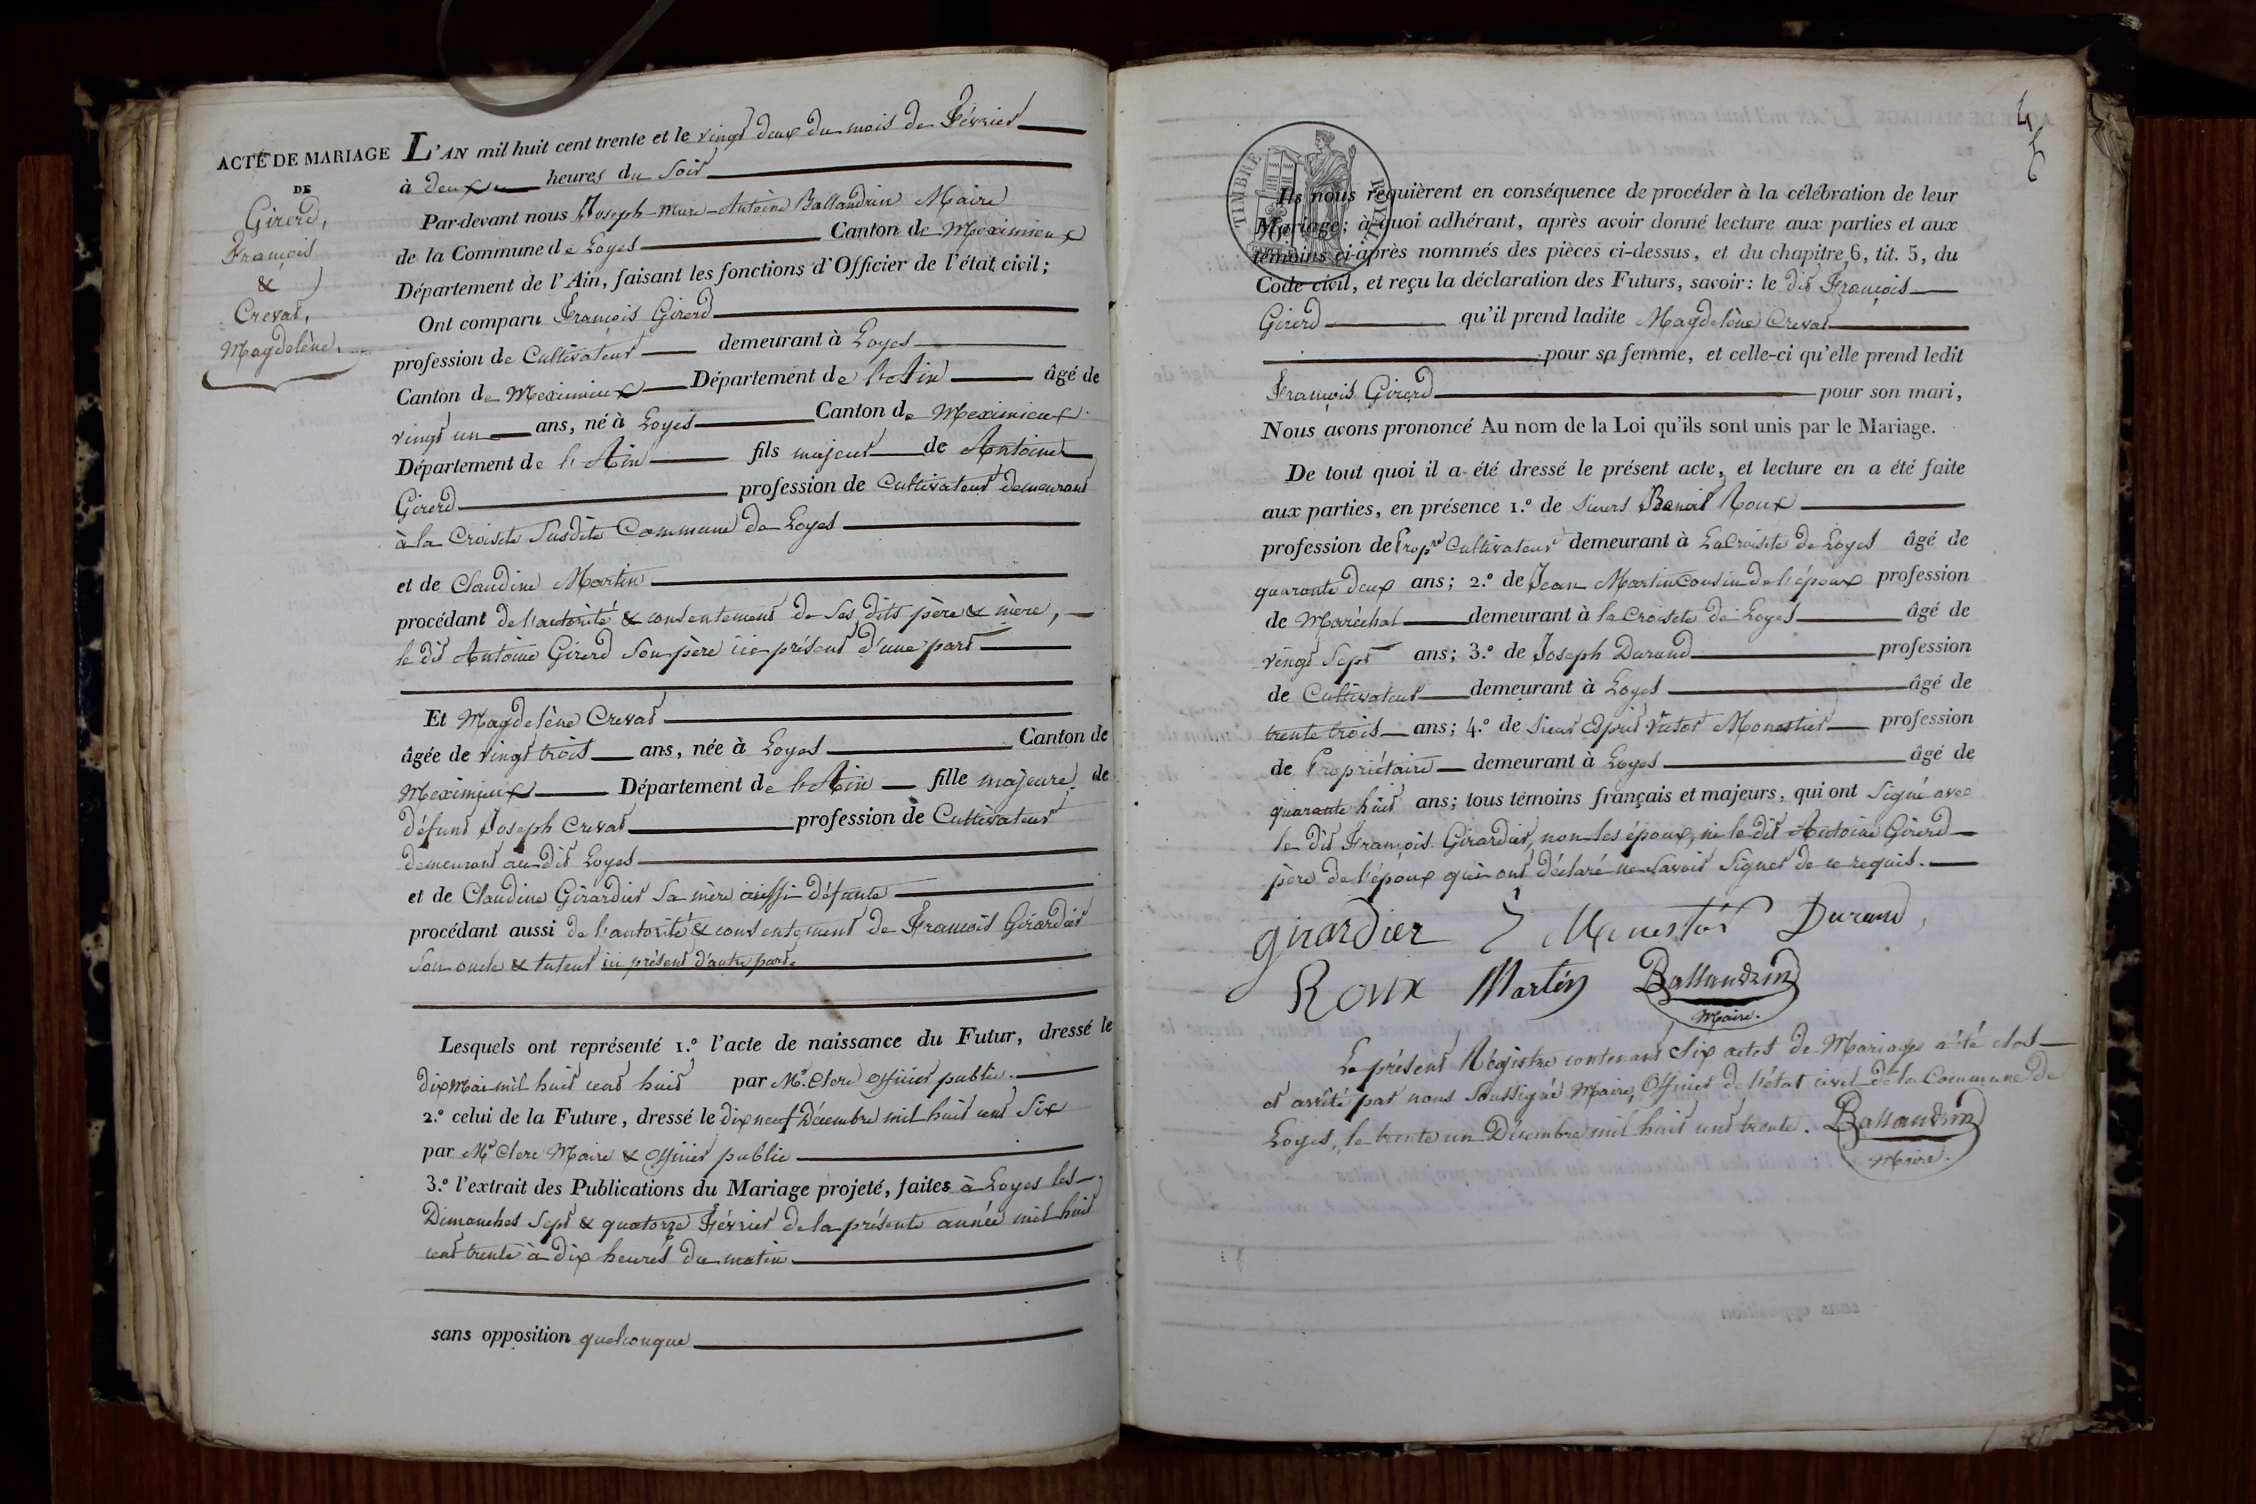 ACTE DE MARIAGE
DE
Girerd,
François
&
Crevat,
Magdelène.
L'AN mil huit cent trente et le vingt deux du mois de Février
à deux heures du Soir
Par-devant nous Joseph-Marie-Antoine Ballandrin Maire
de la Commune de Loyes Canton de Meximieux
Département de l'Ain, faisant les fonctions d'Officier de l'état civil;
Ont comparu François Girerd
profession de Cultivateur demeurant à Loyes
Canton de Meximieux Département de l'Ain âgé de
vingt un ans, né à Loyes Canton de Meximieux
Département de l'Ain fils majeur de Antoine
Girerd profession de Cultivateur demeurant
à la Croisete Susdite Commune de Loyes
et de Claudine Martin
procédant de l'autorité & consentement de Ses dits père & mère,
le dit Antoine Girerd Son père ici présent d'une part
Et Magdelène Crevat
âgée de vingt trois ans, née à Loyes Canton de
Meximieux Département de l'Ain fille majeure de
défunt Joseph Crevat profession de Cultivateur
demeurant au dit Loyes
et de Claudine Girardier Sa mère aussi défunte
procédant aussi de l'autorité & consentement de François Girardier
Son oncle & tuteur ici présent d'autre part.
Lesquels ont représenté 1.º l'acte de naissance du Futur, dressé le
dix Mai mil huit cent huit par Mr. Clerc Officier public.
2.º celui de la Future, dressé le dix neuf Décembre mil huit cent Six
par Mr Clerc Maire & Officier public
3.º l'extrait des Publications du Mariage projeté, faites à Loyes les
Dimanches Sept & quatorze Février de la présente année mil huit
cent trente à dix heures du matin
sans opposition quelconque
TIMBRE ROYAL
Ils nous requièrent en conséquence de procéder à la célébration de leur
Mariage; à quoi adhérant, après avoir donné lecture aux parties et aux
témoins ci-après nommés des pièces ci-dessus, et du chapitre 6, tit. 5, du
Code civil, et reçu la déclaration des Futurs, savoir: le dit François
Girerd qu'il prend ladite Magdelène Crevat
pour sa femme, et celle-ci qu'elle prend ledit
François Girerd pour son mari,
Nous avons prononcé Au nom de la Loi qu'ils sont unis par le Mariage.
De tout quoi il a été dressé le présent acte, et lecture en a été faite
aux parties, en présence 1.º de Sieurs Benoit Roux
profession de Propre Cultivateur demeurant à La Croisete de Loyes âgé de
quarante deux ans; 2.º de Jean Martin Cousin de l'époux profession
de Maréchal demeurant à la Croisete de Loyes âgé de
vingt Sept ans; 3.º de Joseph Durand profession
de Cultivateur demeurant à Loyes âgé de
trente trois ans; 4.º de Sieur Esprit Victor Monestier profession
de Propriétaire demeurant à Loyes âgé de
quarante huit ans; tous témoins français et majeurs, qui ont Signé avec
le dit François Girardier, non les époux, ni le dit Antoine Girerd
père de l'époux qui ont déclaré ne Savoir Signer de ce requis.
girardier Monestier Durand,
Roux Martin Ballandrin
Maire.
Le présent Régistre contenant Six actes de Mariages a été clos
et arrêté par nous Soussigné Maire, Officier de l'état civil de la Commune de
Loyes, le trente un Décembre mil huit cent trente. Ballandrin
Maire.